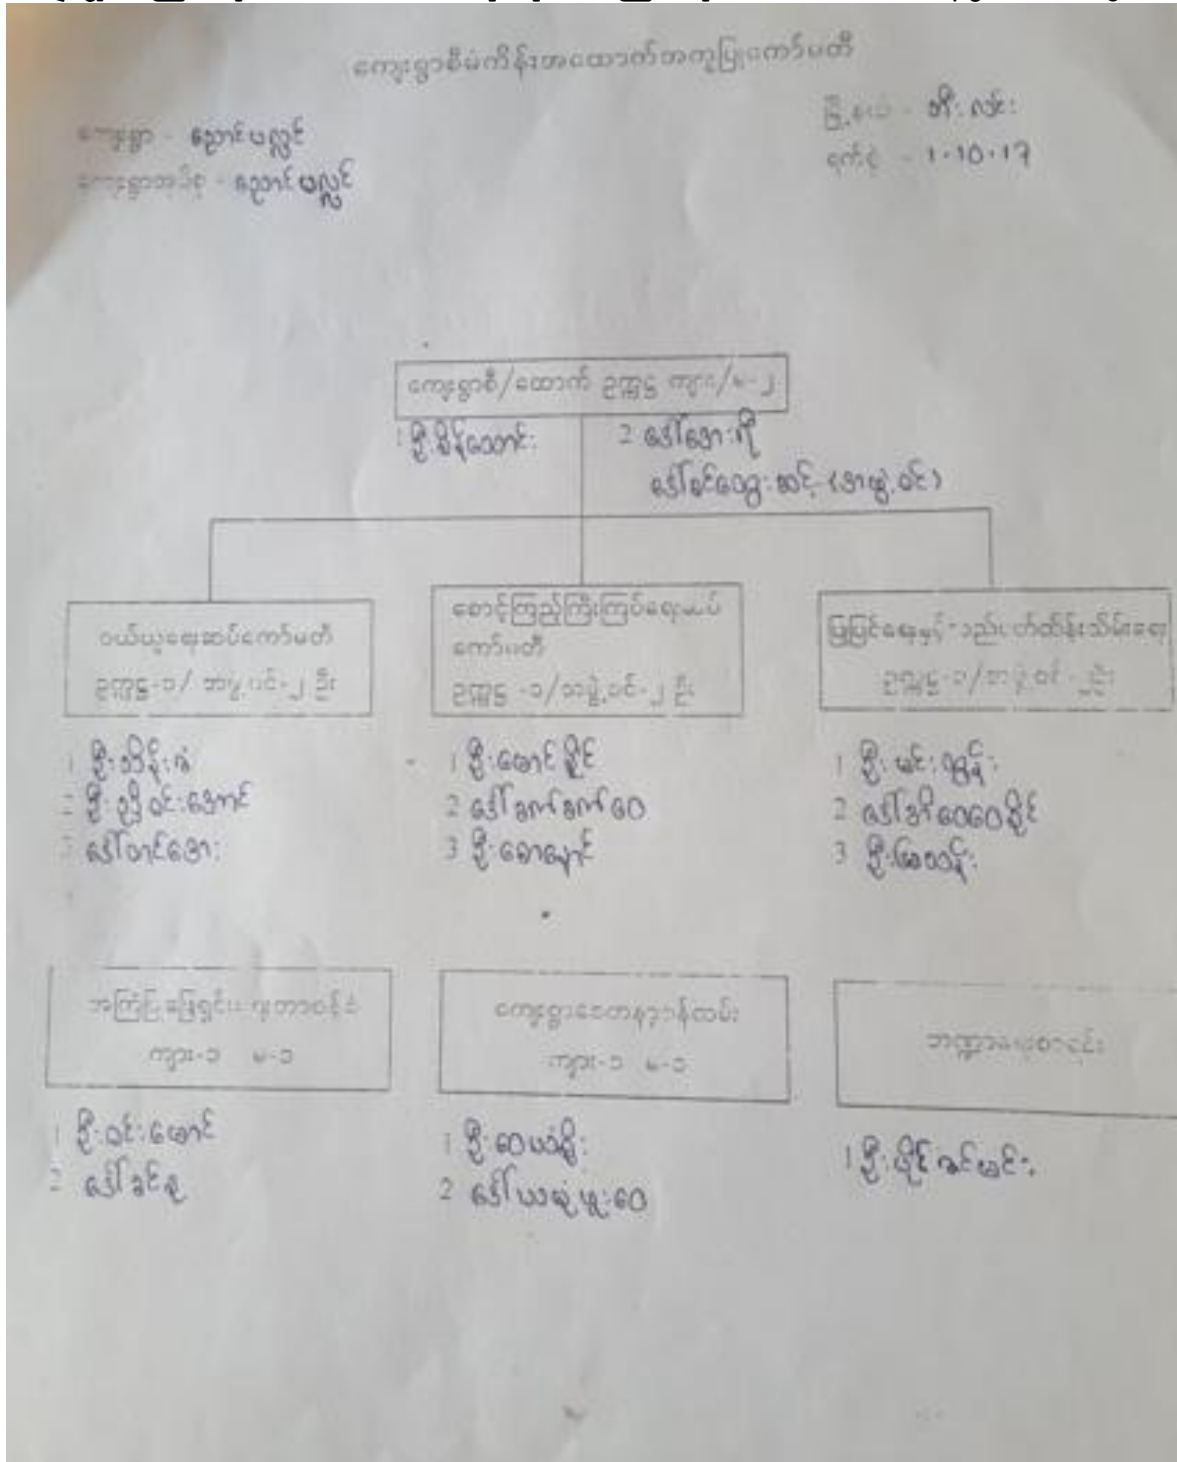 ကျေးရွာစီမံကိန်းအထောက်အကူပြုကော်မတီ
ကျေးရွာ - ညောင်ပလ္လင်
မြို့နယ် - ဘီးလင်း
ကျေးရွာအုပ်စု - ညောင်ပလ္လင်
ရက်စွဲ - 1.10.17
ကျေးရွာစီ/ထောက် ဥက္ကဋ္ဌ ကျား/မ-၂
1 ဦးစိန်သောင်း
2 ဒေါ်အေး
ဒေါ်ခင်ထွေးဆင့် (အဖွဲ့ဝင်)
ဝယ်ယူရေးဆပ်ကော်မတီ
ဥက္ကဋ္ဌ-၁/ အဖွဲ့ဝင်-၂ ဦး
1 ဦးသိန်း
2 ဦး ဝင်းအောင်
3 ဒေါ်တင်အေး
စောင့်ကြည့်ကြီးကြပ်ရေးဆပ်
ကော်မတီ
ဥက္ကဋ္ဌ -၁/အဖွဲ့ဝင်-၂ ဦး
1 ဦးမောင်ခိုင်
2 ဒေါ်ခက်ခက်ဝေ
3 ဦးစောနောင်
ပြုပြင်ရေးနှင့်တည်ပတ်ထိန်းသိမ်းရေး
ဥက္ကဋ္ဌ-၁/အဖွဲ့ဝင် -၂ဦး
1 ဦးမင်း
2 ဒေါ်အိဝေဝေခိုင်
3 ဦး
အကြံပြုဖြေရှင်း တာဝန်ခံ
ကျား-၁ မ-၁
1 ဦးဝင်းမောင်
2 ဒေါ်ခင်နု
ကျေးရွာစေတနာ့ဝန်ထမ်း
ကျား-၁ မ-၁
1 ဦးဝေယံဖြိုး
2 ဒေါ်ယမုံဖူးဝေ
ဘဏ္ဍာရေးစာရင်း
1 ဦးပိုင် မင်း